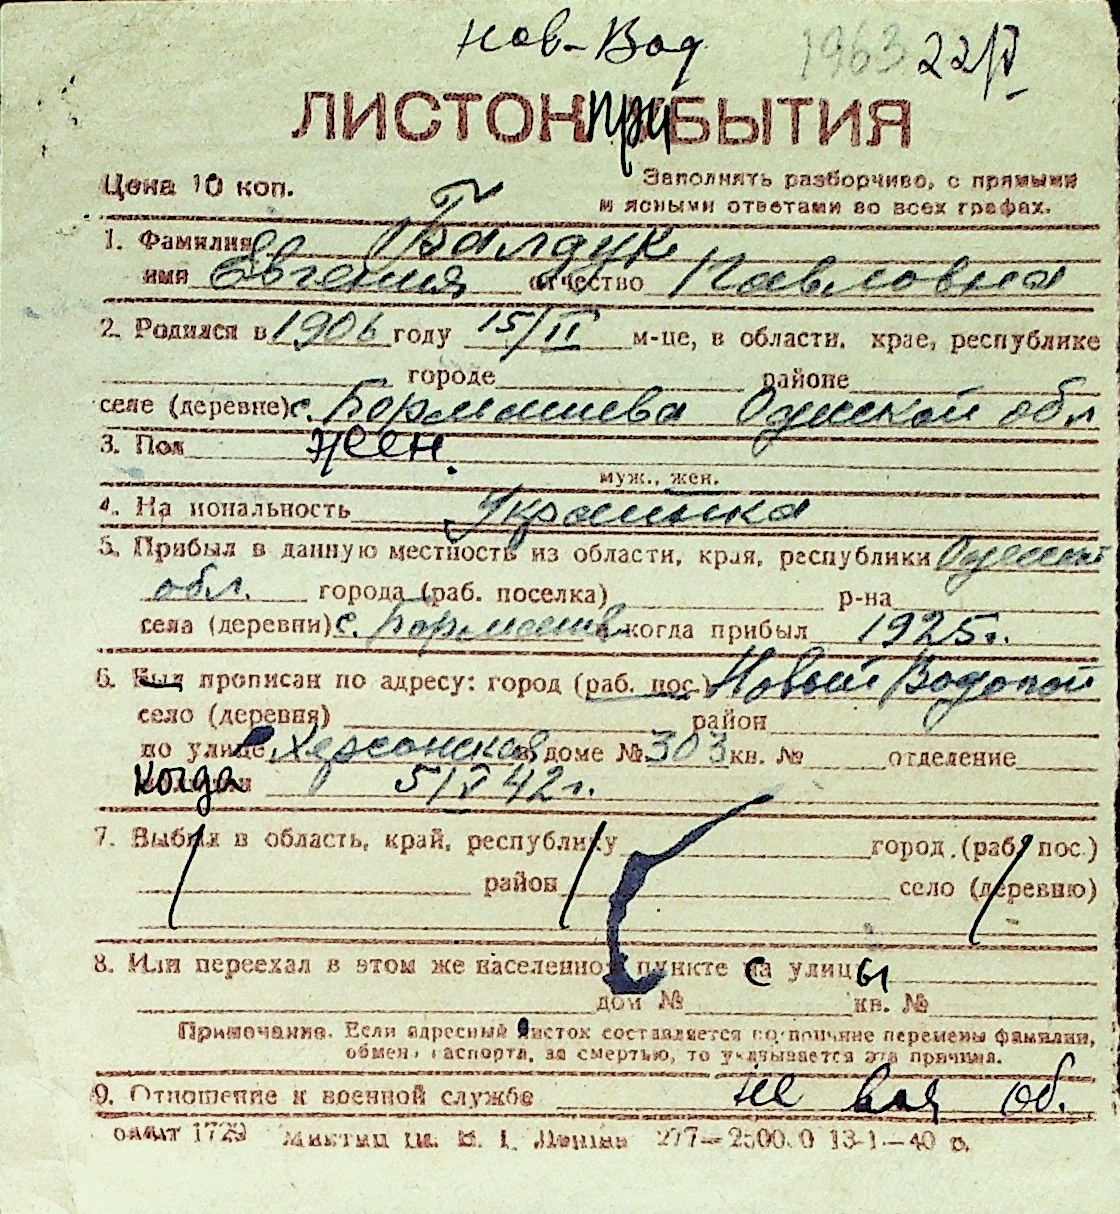 Нов-Вод 1963 22/V
ЛИСТОК ПриБЫТИЯ
Цена 10 коп. Заполнять разборчиво, с прямыми
и ясными ответами во всех графах.
1. Фамилия Балдук
имя Евгения отчество Павловна
2. Родился в 1906 году 15/II м-це, в области, крае, республике
городе районе
селе (деревне) с. Одесской обл
3. Пол жен.
муж., жен.
4. Национальность Украинка
5. Прибыл в данную местность из области, края, республики Одесской
обл. города (раб. поселка) р-на
села (деревни) с. когда прибыл 1925г.
6. Был прописан по адресу: город (раб. пос.) Новый Водопой
село (деревня) район
по улице Херсонская в доме № 303 кв. № отделение
когда 5/V 42г.
7. Выбыл в область, край, республику город (раб. пос.)
район село (деревню)
8. Или переехал в этом же населенном пункте с улицы
дом № кв. №
Примечание. Если адресный листок составляется по причине перемены фамилии,
обмена паспорта, за смертью, то указывается эта причина.
9. Отношение к военной службе не воя об.
1729 277—2500.0 13-1.—40 р.